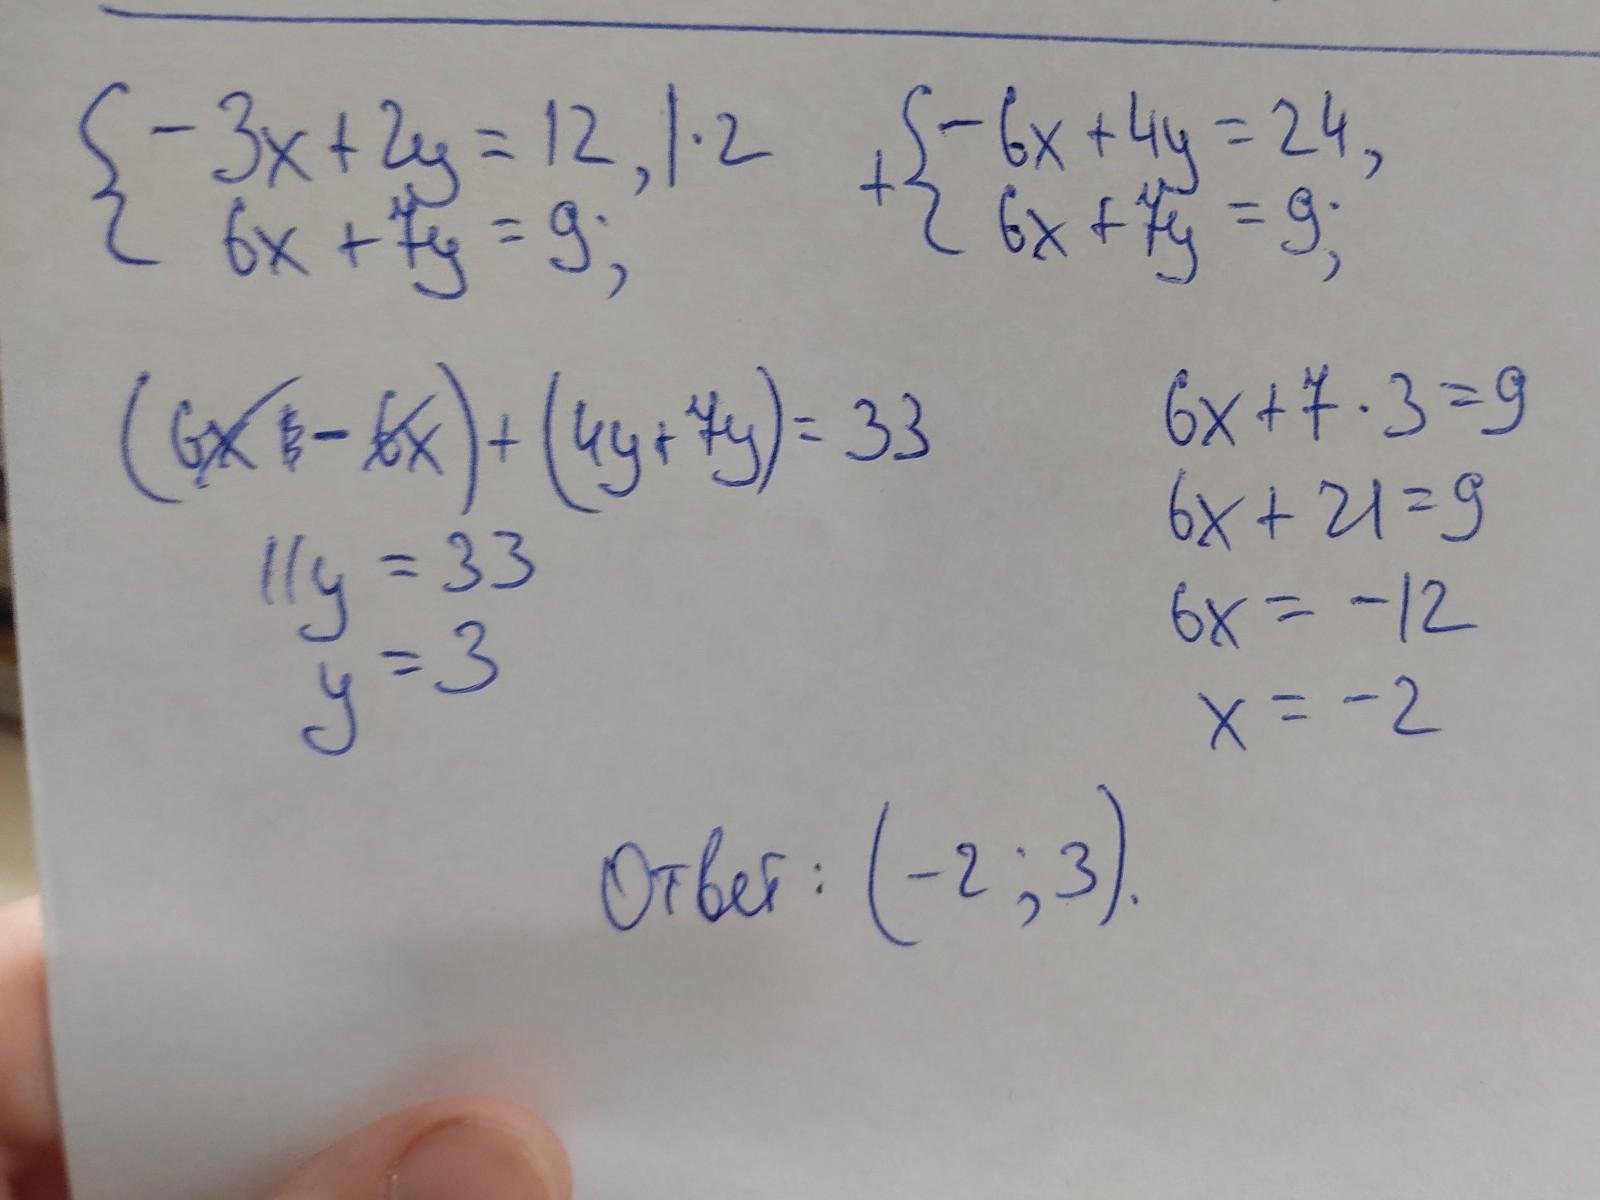 { -3x + 2y = 12, | · 2
6x + 7y = 9;
+ { -6x + 4y = 24,
6x + 7y = 9;
(6x - 6x) + (4y + 7y) = 33
11y = 33
y = 3
6x + 7 · 3 = 9
6x + 21 = 9
6x = -12
x = -2
Ответ: (-2; 3).